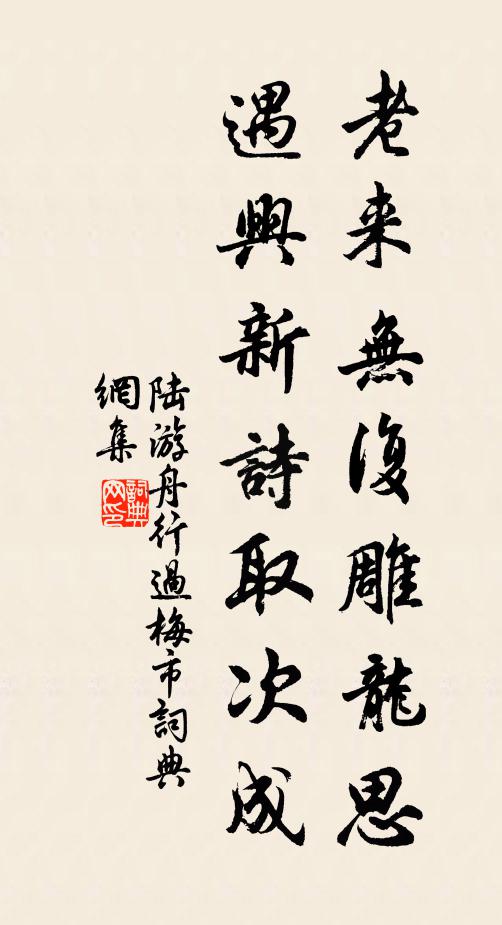 老来無復雕龍思
遇興新詩取次成
陆游舟行過梅市詞典
網集
詞典
网印